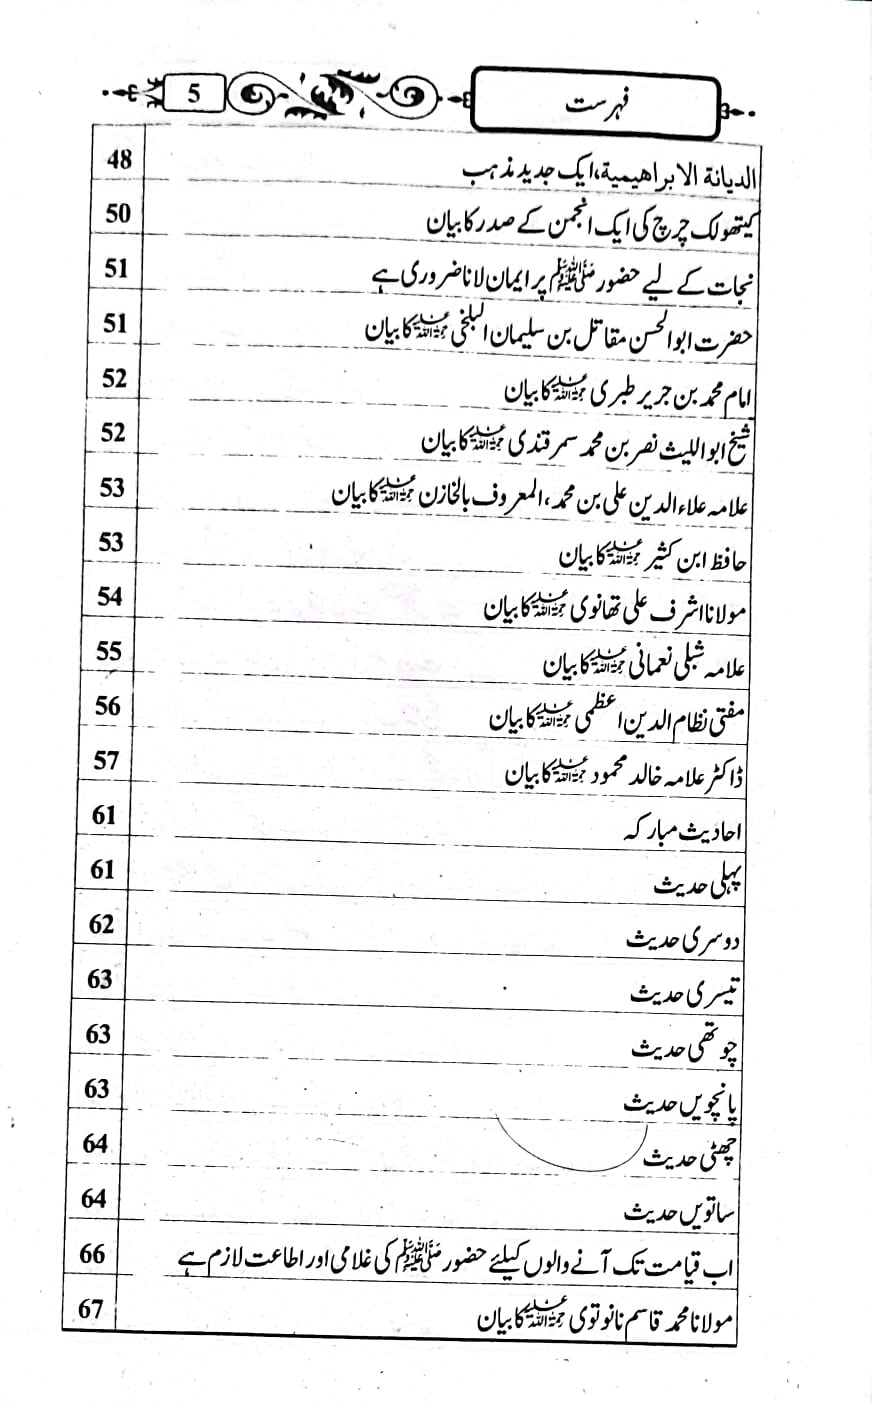 فہرست 5
الدیانة الابراهيمية، ایک جدید مذہب 48
کیتھولک چرچ کی ایک انجمن کے صدر کا بیان 50
نجات کے لیے حضور ﷺ پر ایمان لانا ضروری ہے 51
حضرت ابوالحسن مقاتل بن سلیمان البلخی رحمۃ اللہ علیہ کا بیان 51
امام محمد بن جریر طبری رحمۃ اللہ علیہ کا بیان 52
شیخ ابواللیث نصر بن محمد سمرقندی رحمۃ اللہ علیہ کا بیان 52
علامہ علاءالدین علی بن محمد، المعروف بالخازن رحمۃ اللہ علیہ کا بیان 53
حافظ ابن کثیر رحمۃ اللہ علیہ کا بیان 53
مولانا اشرف علی تھانوی رحمۃ اللہ علیہ کا بیان 54
علامہ شبلی نعمانی رحمۃ اللہ علیہ کا بیان 55
مفتی نظام الدین اعظمی رحمۃ اللہ علیہ کا بیان 56
ڈاکٹر علامہ خالد محمود رحمۃ اللہ علیہ کا بیان 57
احادیث مبارکہ 61
پہلی حدیث 61
دوسری حدیث 62
تیسری حدیث 63
چوتھی حدیث 63
پانچویں حدیث 63
چھٹی حدیث 64
ساتویں حدیث 64
اب قیامت تک آنے والوں کیلئے حضور ﷺ کی غلامی اور اطاعت لازم ہے 66
مولانا محمد قاسم نانوتوی رحمۃ اللہ علیہ کا بیان 67